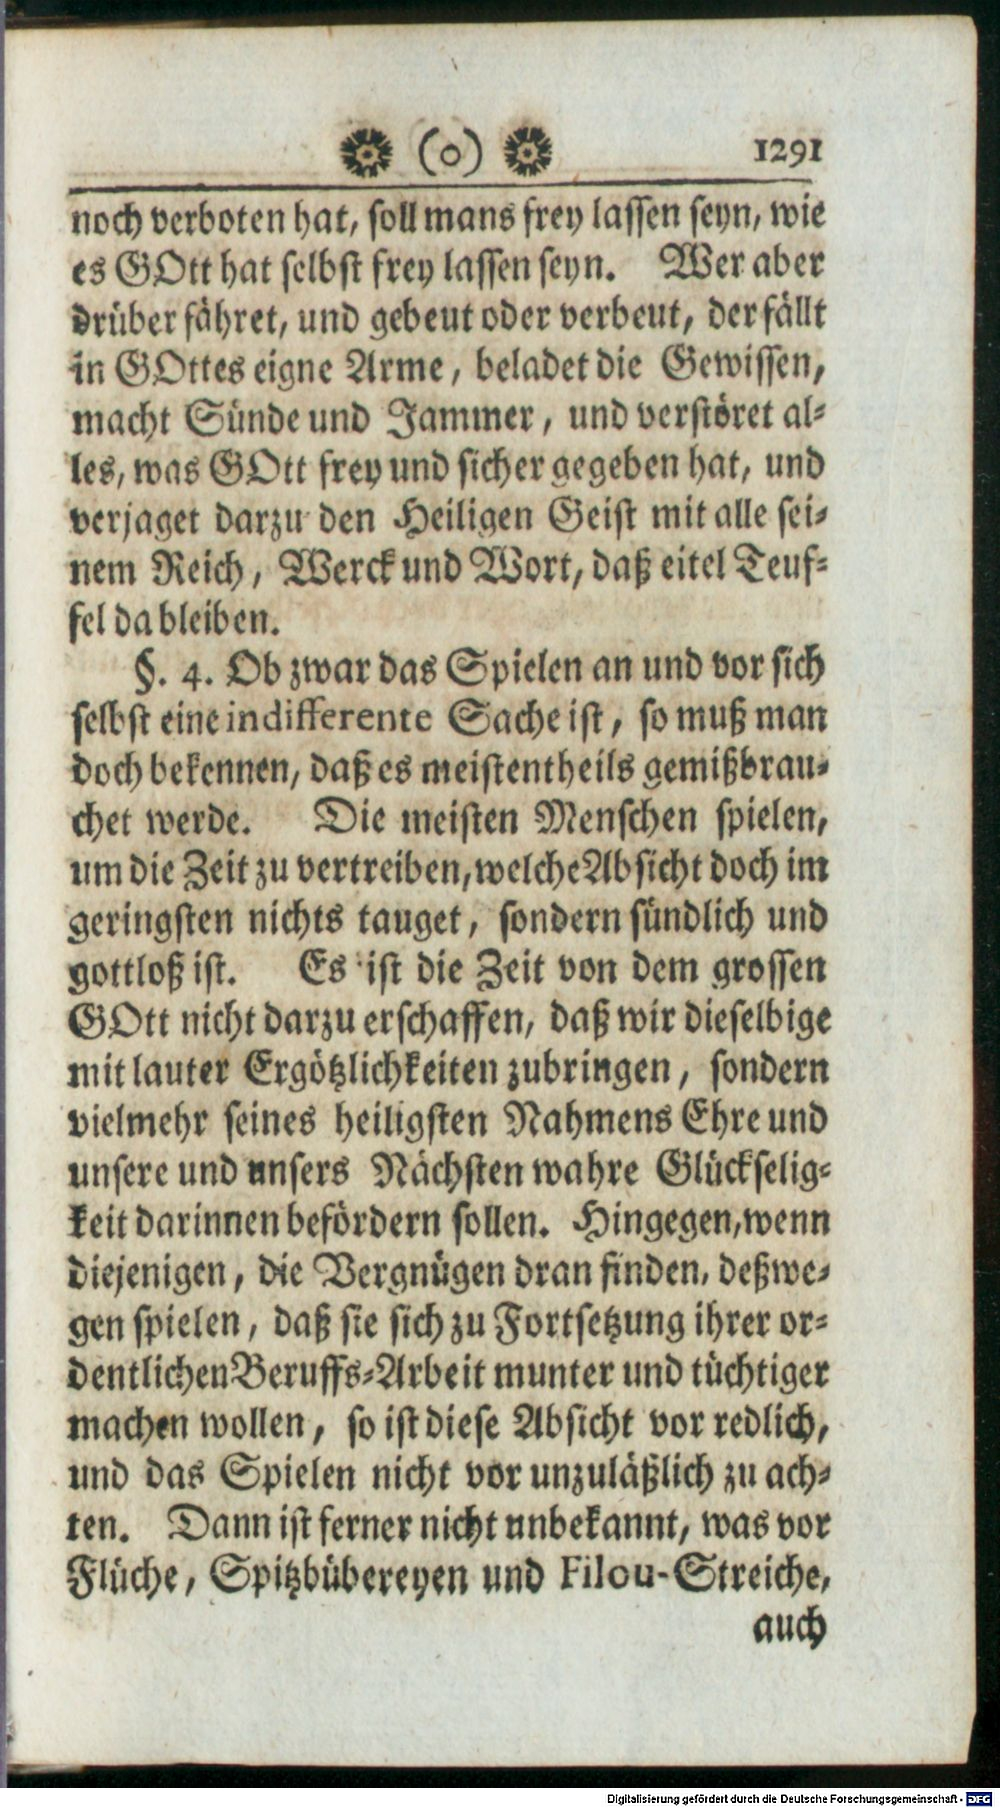 (o) 1291
noch verboten hat, soll mans frey lassen seyn, wie
es GOtt hat selbst frey lassen seyn. Wer aber
drüber fähret, und gebeut oder verbeut, der fällt
in GOttes eigne Arme, beladet die Gewissen,
macht Sünde und Jammer, und verstöret al-
les, was GOtt frey und sicher gegeben hat, und
verjaget darzu den Heiligen Geist mit alle sei-
nem Reich, Werck und Wort, daß eitel Teuf-
fel da bleiben.
§. 4. Ob zwar das Spielen an und vor sich
selbst eine indifferente Sache ist, so muß man
doch bekennen, daß es meistentheils gemißbrau-
chet werde. Die meisten Menschen spielen,
um die Zeit zu vertreiben, welche Absicht doch im
geringsten nichts tauget, sondern sündlich und
gottloß ist. Es ist die Zeit von dem grossen
GOtt nicht darzu erschaffen, daß wir dieselbige
mit lauter Ergötzlichkeiten zubringen, sondern
vielmehr seines heiligsten Nahmens Ehre und
unsere und unsers Nächsten wahre Glückselig-
keit darinnen befördern sollen. Hingegen, wenn
diejenigen, die Vergnügen dran finden, deßwe-
gen spielen, daß sie sich zu Fortsetzung ihrer or-
dentlichen Beruffs-Arbeit munter und tüchtiger
machen wollen, so ist diese Absicht vor redlich,
und das Spielen nicht vor unzuläßlich zu ach-
ten. Dann ist ferner nicht unbekannt, was vor
Flüche, Spitzbübereyen und Filou-Streiche,
auch
Digitalisierung gefördert durch die Deutsche Forschungsgemeinschaft - DFG